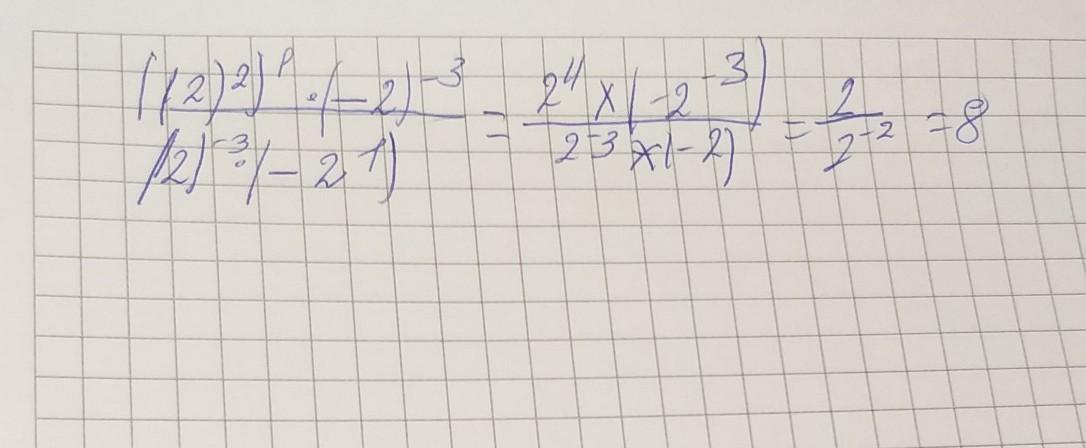 ((2)²)ᵖ · (-2)⁻³ / (2)⁻³ · (-2¹) = 2⁴ × (-2⁻³) / 2⁻³ × (-2) = 2 / 2⁻² = 8